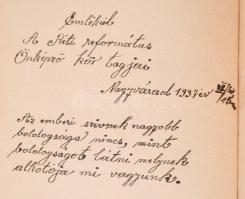 Emlékül
A Réti református
Önképző kör tagjai
Nagyvárad 1937 év
Az emberi szivnek nagyobb
boldogsága nincs, mint
boldogságot látni melynek
alkotója mi vagyunk.